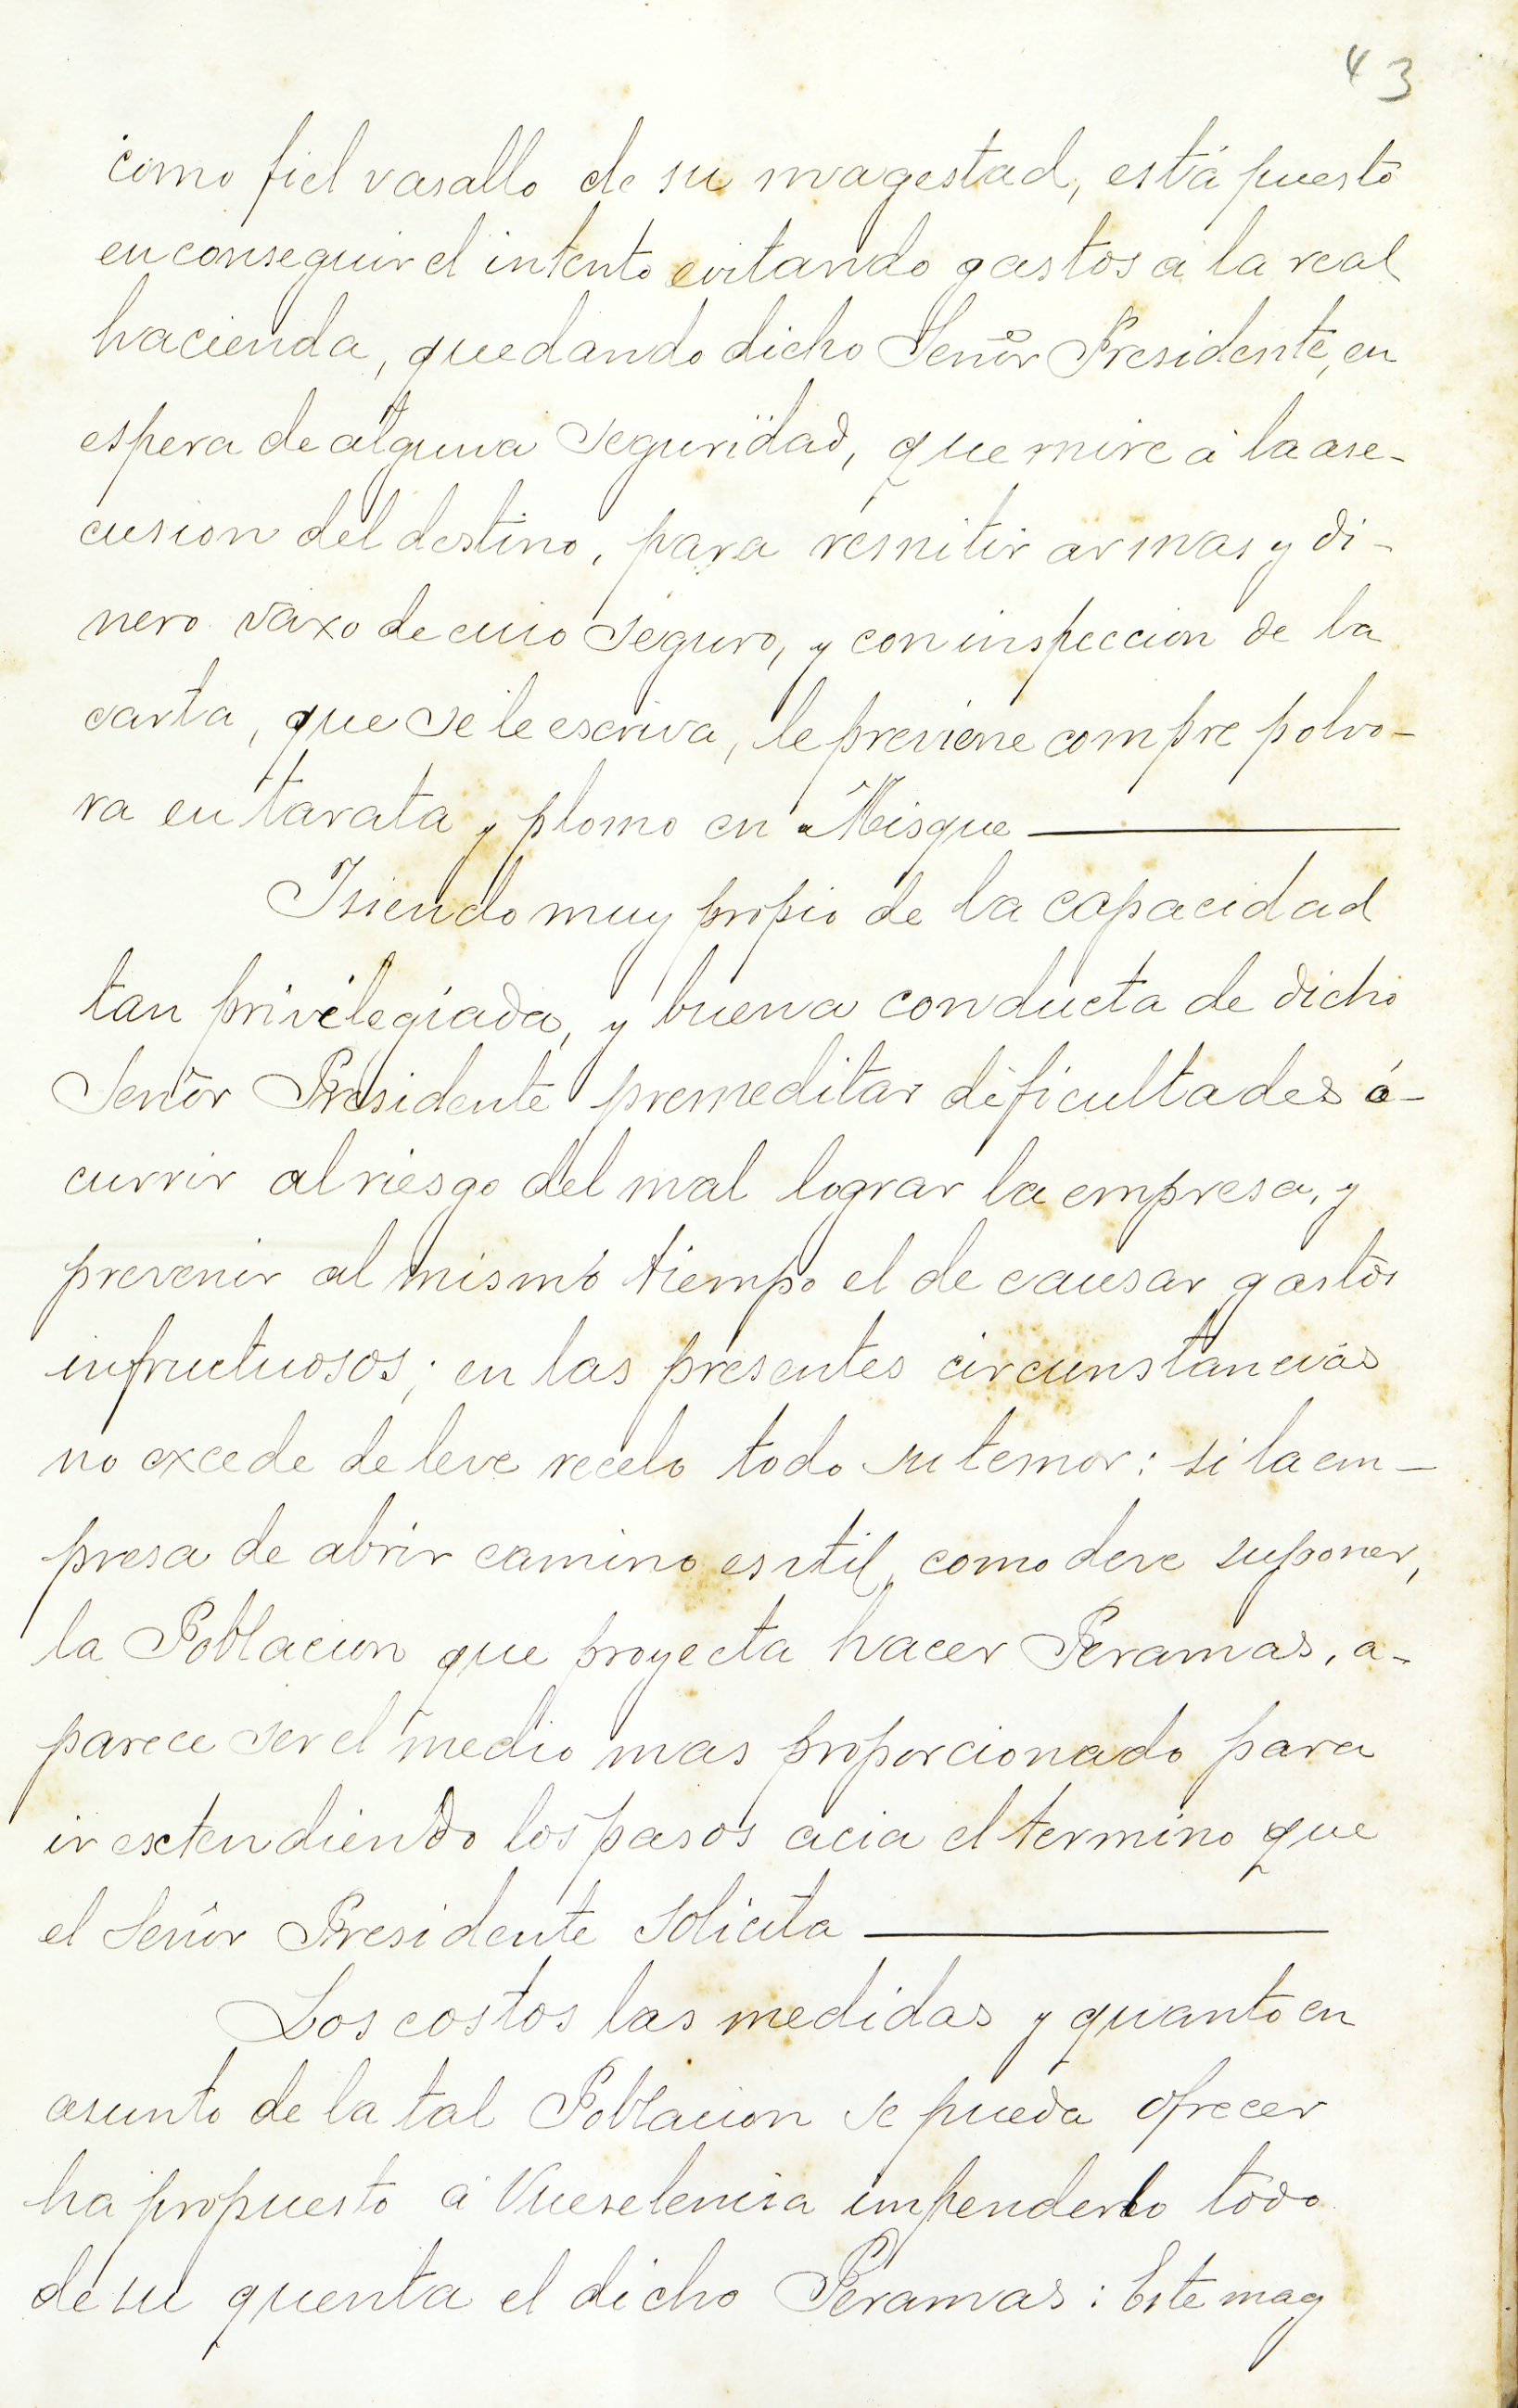 43
como fiel vasallo de su magestad, está puesto
en conseguir el intento evitando gastos á la real
hacienda, quedando dicho Señor Presidente, en
espera de alguna seguridad, que mire á la ase-
cusion del destino, para remitir armas y di-
nero vaxo de cuio seguro, y con inspeccion de la
carta, que se le escriva, le previene compre polvo-
ra en tarata y plomo en Misque
Isiendo muy propio de la capacidad
tan privilegiada, y buena conducta de dicho
Señor Presidente premeditar dificultades ó-
currir al riesgo del mal lograr la empresa, y
prevenir al mismo tiempo el de causar gastos
infructuosos; en las presentes circunstancias
no excede de leve recelo todo su temor: si la em-
presa de abrir camino es util, como deve suponer,
la Poblacion que proyecta hacer Peramas, a-
parece ser el medio mas proporcionado para
ir extendiendo los pasos acia el termino que
el Señor Presidente solicita
Los costos las medidas y quanto en
asunto de la tal Poblacion se pueda ofrecer
ha propuesto á Vueselencia impenderlo todo
de su quenta el dicho Peramas: Este mag